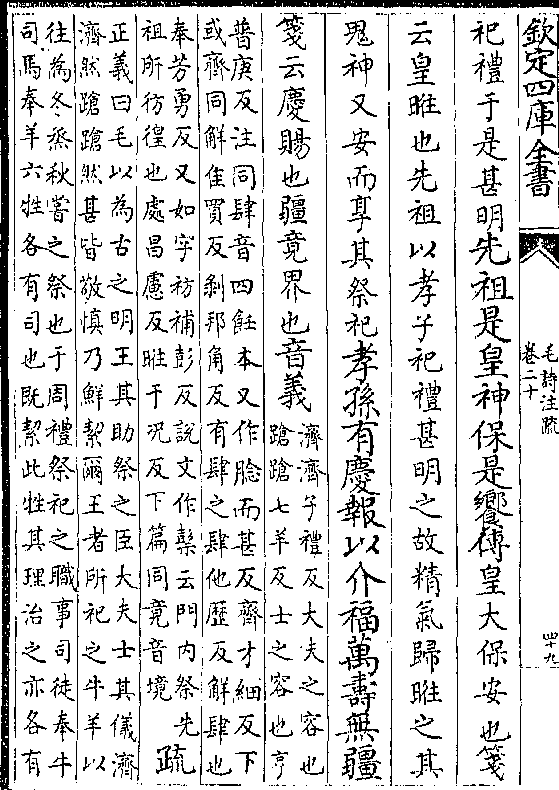 欽定四庫全書
毛詩注疏
卷二十
四十九
祀禮于是甚明先祖是皇神保是饗傳皇大保安也箋
云皇暀也先祖以孝子祀禮甚明之故精氣歸暀之其
鬼神又安而享其祭祀孝孫有慶報以介福萬壽無疆
箋云慶賜也疆竟界也音義
濟濟子禮反大夫之容也
蹌蹌七羊反士之容也亨
普庚反注同肆音四飪本又作腍而甚反齊才細反下
或齊同解佳買反剝邦角反有肆之肆他歷反解肆也
奉芳勇反又如字祊補彭反說文作𥛱云門内祭先
祖所彷徨也處昌慮反暀于況反下篇同竟音境
疏
正義曰毛以為古之明王其助祭之臣大夫士其儀濟
濟然蹌蹌然甚皆敬慎乃鮮絜爾王者所祀之牛羊以
往為冬烝秋嘗之祭也于周禮祭祀之職事司徒奉牛
司馬奉羊六牲各有司也既絜此牲其理治之亦各有